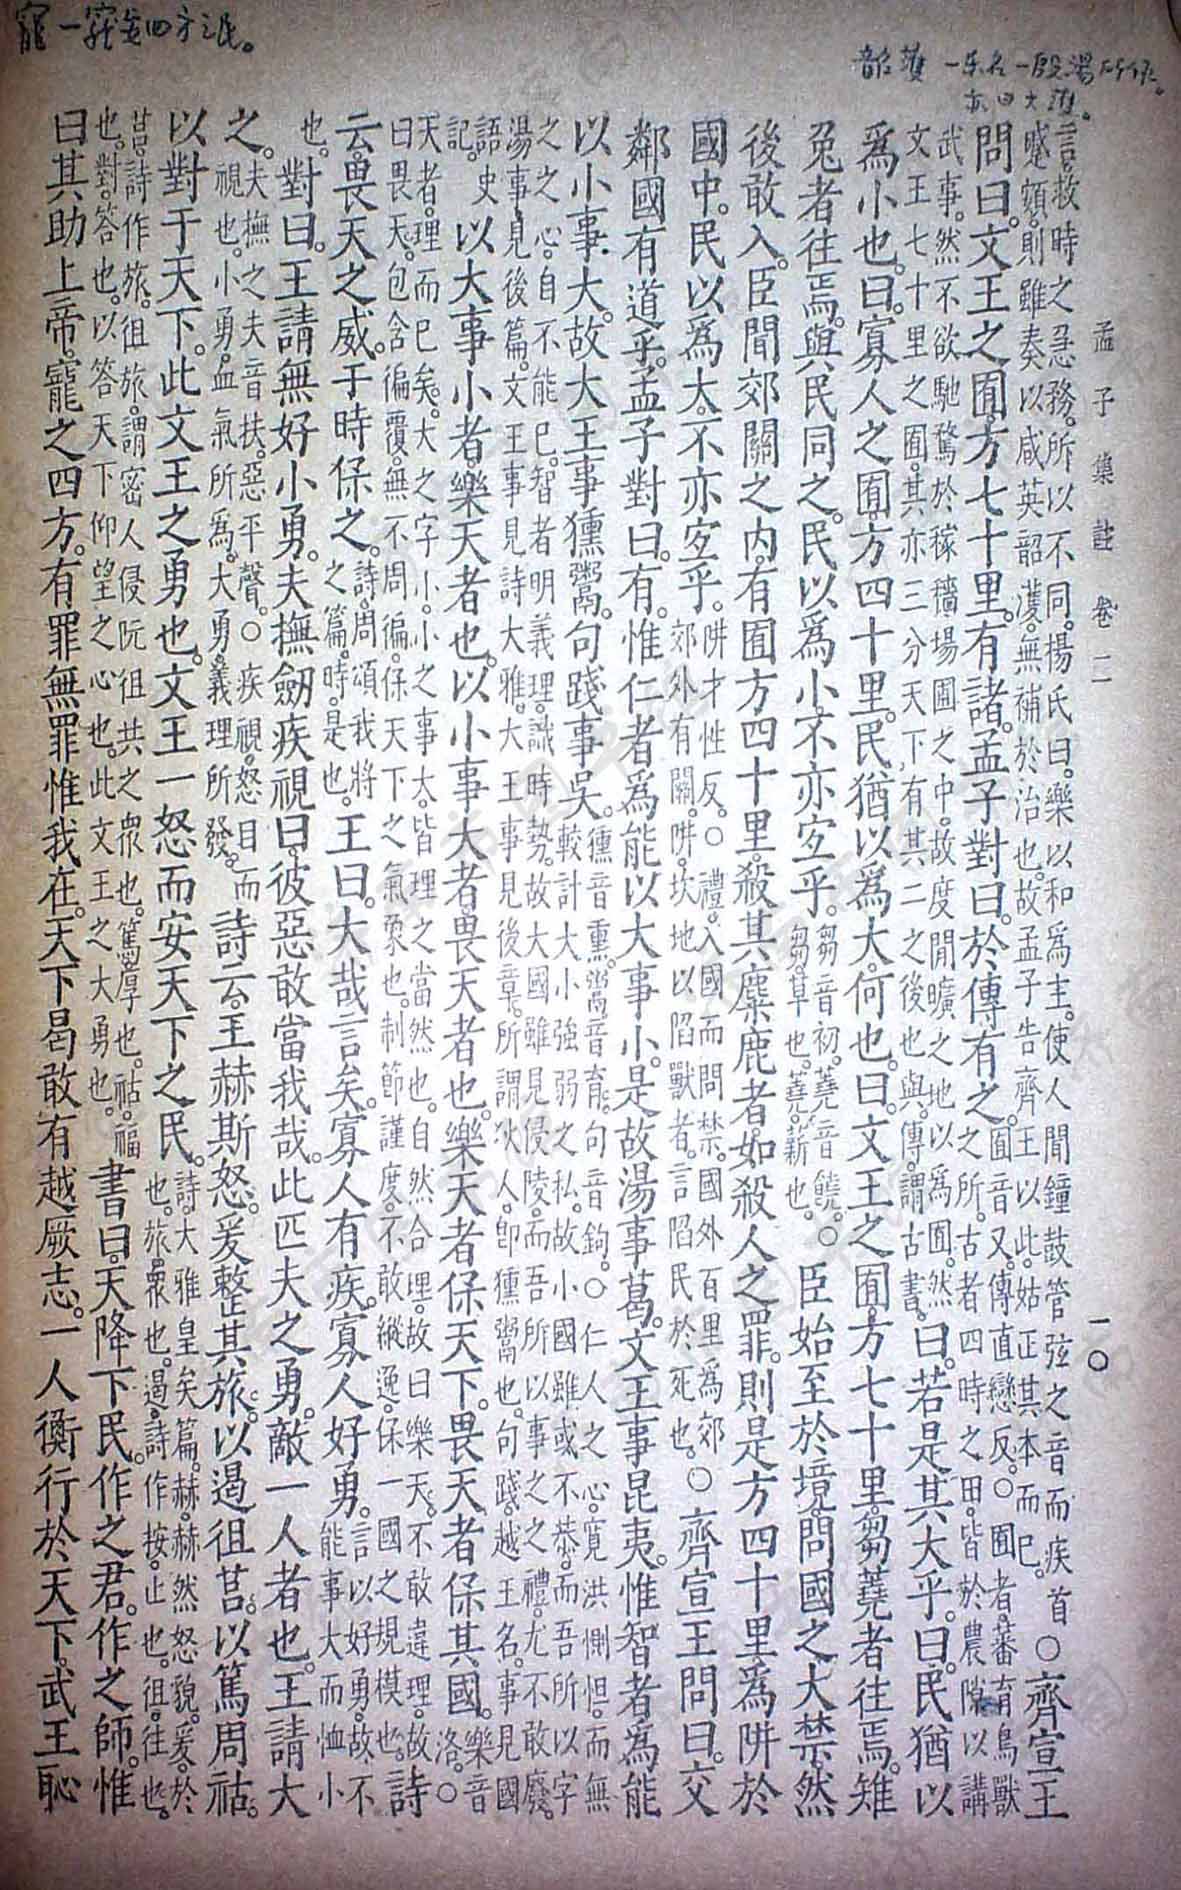 韶濩一乐名一殷湯所作。
亦曰大濩。
寵一寵安四方之民。
孟子集註 卷二 一〇
言救時之急務。所以不同。楊氏曰。樂以和爲主。使人聞鐘鼓管弦之音而疾首
蹙頞。則雖奏以咸英韶濩。無補於治也。故孟子告齊王以此。姑正其本而已。○齊宣王
問曰。文王之囿。方七十里。有諸。孟子對曰。於傳有之。囿音又。傳直戀反。○囿者。蕃育鳥獸
之所。古者四時之田。皆於農隙以講
武事。然不欲馳騖於稼穡場圃之中。故度閒曠之地以爲囿。然
文王七十里之囿。其亦三分天下有其二之後也與。傳。謂古書。曰。若是其大乎。曰。民猶以
爲小也。曰。寡人之囿。方四十里。民猶以爲大。何也。曰。文王之囿。方七十里。芻蕘者往焉。雉
兔者往焉。與民同之。民以爲小。不亦宜乎。芻音初。蕘音饒。○
芻。草也。蕘。薪也。臣始至於境。問國之大禁。然
後敢入。臣聞郊關之內。有囿方四十里。殺其麋鹿者如殺人之罪。則是方四十里。爲阱於
國中。民以爲大。不亦宜乎。阱才性反。○禮。入國而問禁。國外百里爲郊。
郊外有關。阱。坎地以陷獸者。言陷民於死也。○齊宣王問曰。交
鄰國有道乎。孟子對曰。有。惟仁者爲能以大事小。是故湯事葛。文王事昆夷。惟智者爲能
以小事大。故大王事獯鬻。句踐事吳。獯音熏。鬻音育。句音鉤。○仁人之心。寬洪惻怛。而無
較計大小強弱之私。故小國雖或不恭。而吾所以字
之之心。自不能已。智者明義理。識時勢。故大國雖見侵陵。而吾所以事之之禮。尤不敢廢。
湯事見後篇。文王事見詩大雅。大王事見後章。所謂狄人。卽獯鬻也。句踐。越王名。事見國
語史
記。以大事小者。樂天者也。以小事大者。畏天者也。樂天者保天下。畏天者保其國。樂音
洛。○
天者。理而已矣。大之字小。小之事大。皆理之當然也。自然合理。故曰樂天。不敢違理。故
曰畏天。包含徧覆。無不周徧。保天下之氣象也。制節謹度。不敢縱逸。保一國之規模也。詩
云。畏天之威。于時保之。詩周頌我將
之篇。時。是也。王曰。大哉言矣。寡人有疾。寡人好勇。言以好勇。故不
能事大而恤小
也。對曰。王請無好小勇。夫撫劒疾視曰。彼惡敢當我哉。此匹夫之勇。敵一人者也。王請大
之。夫撫之夫音扶。惡平聲。○疾視。怒目而
視也。小勇。血氣所爲。大勇。義理所發。詩云。王赫斯怒。爰整其旅。以遏徂莒。以篤周祜。
以對于天下。此文王之勇也。文王一怒而安天下之民。詩。大雅皇矣篇。赫。赫然怒貌。爰。於
也。旅。衆也。遏。詩作按。止也。徂。往也。
莒。詩作旅。徂旅。謂密人侵阮徂共之衆也。篤。厚也。祜。福
也。對。答也。以答天下仰望之心也。此文王之大勇也。書曰。天降下民。作之君。作之師。惟
曰其助上帝。寵之四方。有罪無罪惟我在。天下曷敢有越厥志。一人衡行於天下。武王恥